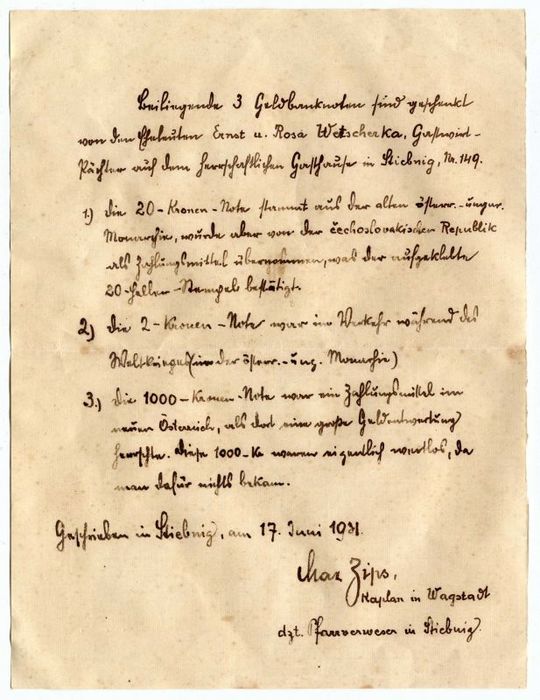 Beiliegende 3 Geldbanknoten sind geschenkt
von den Eheleuten Ernst u. Rosa Wetscherka, Gastwirt-
Pächter auf dem herrschaftlichen Gasthause in Stiebnig, Nr. 149.
1.) Die 20-Kronen-Note stammt aus der alten österr.-ungar.
Monarchie, wurde aber von der čechoslovakischen Republik
als Zahlungsmittel übernommen, was der aufgeklebte
20-Heller-Stempel bestätigt.
2.) Die 2-Kronen-Note war im Verkehr während des
Weltkrieges (in der österr.-ung. Monarchie)
3.) Die 1000-Kronen-Note war ein Zahlungsmittel im
neuen Österreich, als dort eine große Geldentwertung
herrschte. Diese 1000-K waren eigentlich wertlos, da
man dafür nichts bekam.
Geschrieben in Stiebnig, am 17. Juni 1931.
Max Zips,
Kaplan in Wagstadt
dzt. Pfarrverweser in Stiebnig.